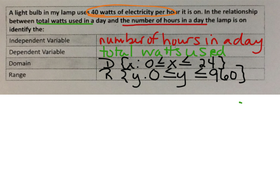 A light bulb in my lamp uses 40 watts of electricity per hour it is on. In the relationship
between total watts used in a day and the number of hours in a day the lamp is on
identify the:
Independent Variable number of hours in a day
Dependent Variable total watts used
Domain D {x: 0 ≤ x ≤ 24}
Range R {y: 0 ≤ y ≤ 960}